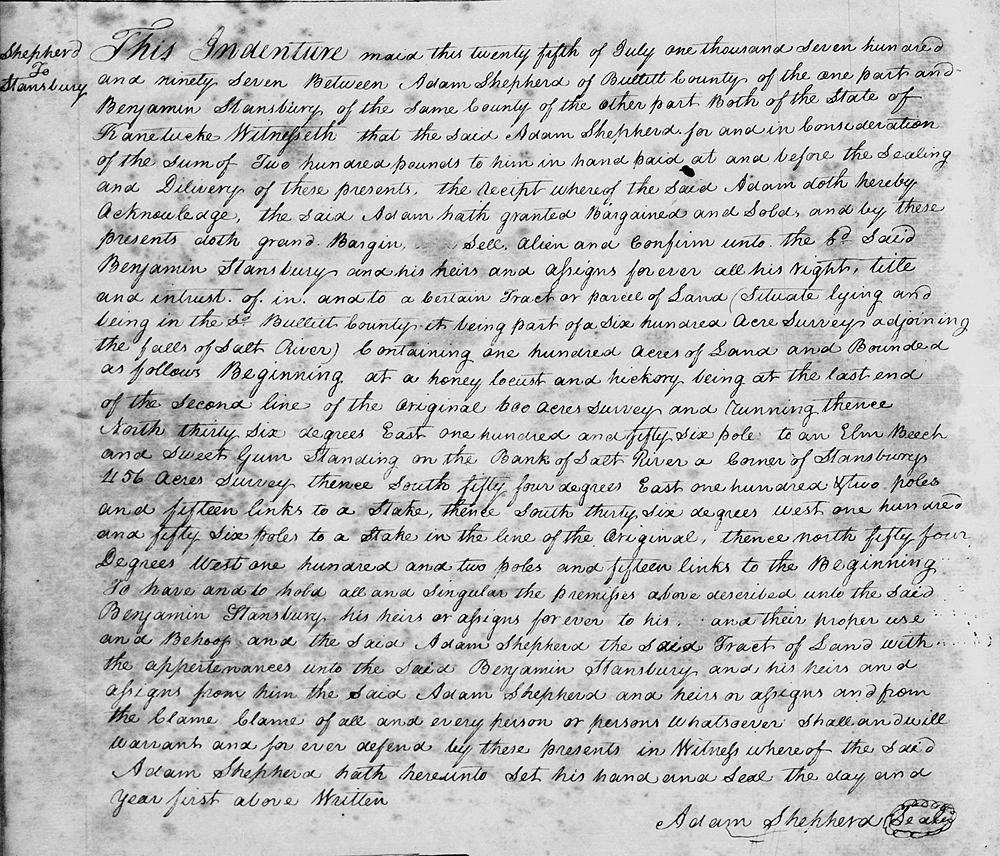 Shepherd
To
Stansbury
This Indenture maid this twenty fifth of July one thousand seven hundred
and ninety seven Between Adam Shepherd of Bullitt County of the one part and
Benjamin Stansbury of the Same County of the other part Both of the State of
Kanetucke Witnesseth that the Said Adam Shepherd for and in Consideration
of the Sum of Two hundred pounds to him in hand paid at and before the Sealing
and Delivery of these presents, the receipt whereof the Said Adam doth hereby
Acknowledge, the Said Adam hath granted Bargained and Sold, and by these
presents doth grand. Bargin, Sell. Alien and Confirm unto the Said
Benjamin Stansbury and his heirs and assigns forever all his right, title
and intrust. of. in. and to a Certain Tract or parcel of Land (Situate lying and
being in the Sd. Bullitt County it being part of a Six hundred Acre Survey adjoining
the falls of Salt River) Containing one hundred Acres of Land and Bounded
as follows Beginning at a honey locust and hickory being at the last end
of the Second line of the original 600 Acres Survey and running thence
North thirty Six degrees East one hundred and fifty Six pole to an Elm Beech
and Sweet Gum Standing on the Bank of Salt River a Corner of Stansburys
456 Acres Survey thence South fifty four degrees East one hundred & two poles
and fifteen links to a Stake, thence South thirty Six degrees west one hundred
and fifty Six poles to a Stake in the line of the Original, thence north fifty four
Degrees West one hundred and two poles and fifteen links to the Beginning
To have and to hold all and Singular the premises above described unto the Said
Benjamin Stansbury his heirs or assigns for ever to his and their proper use
and Behoof and the Said Adam Shepherd the Said Tract of Land with
the appertenances unto the Said Benjamin Stansbury and his heirs and
assigns from him the Said Adam Shepherd and heirs or assigns and from
the Clame Clame of all and every person or persons whatsoever Shall and will
warrant and for ever defend by these presents in Witness whereof the Said
Adam Shepherd hath hereunto Set his hand and Seal the day and
year first above Written
Adam Shepherd